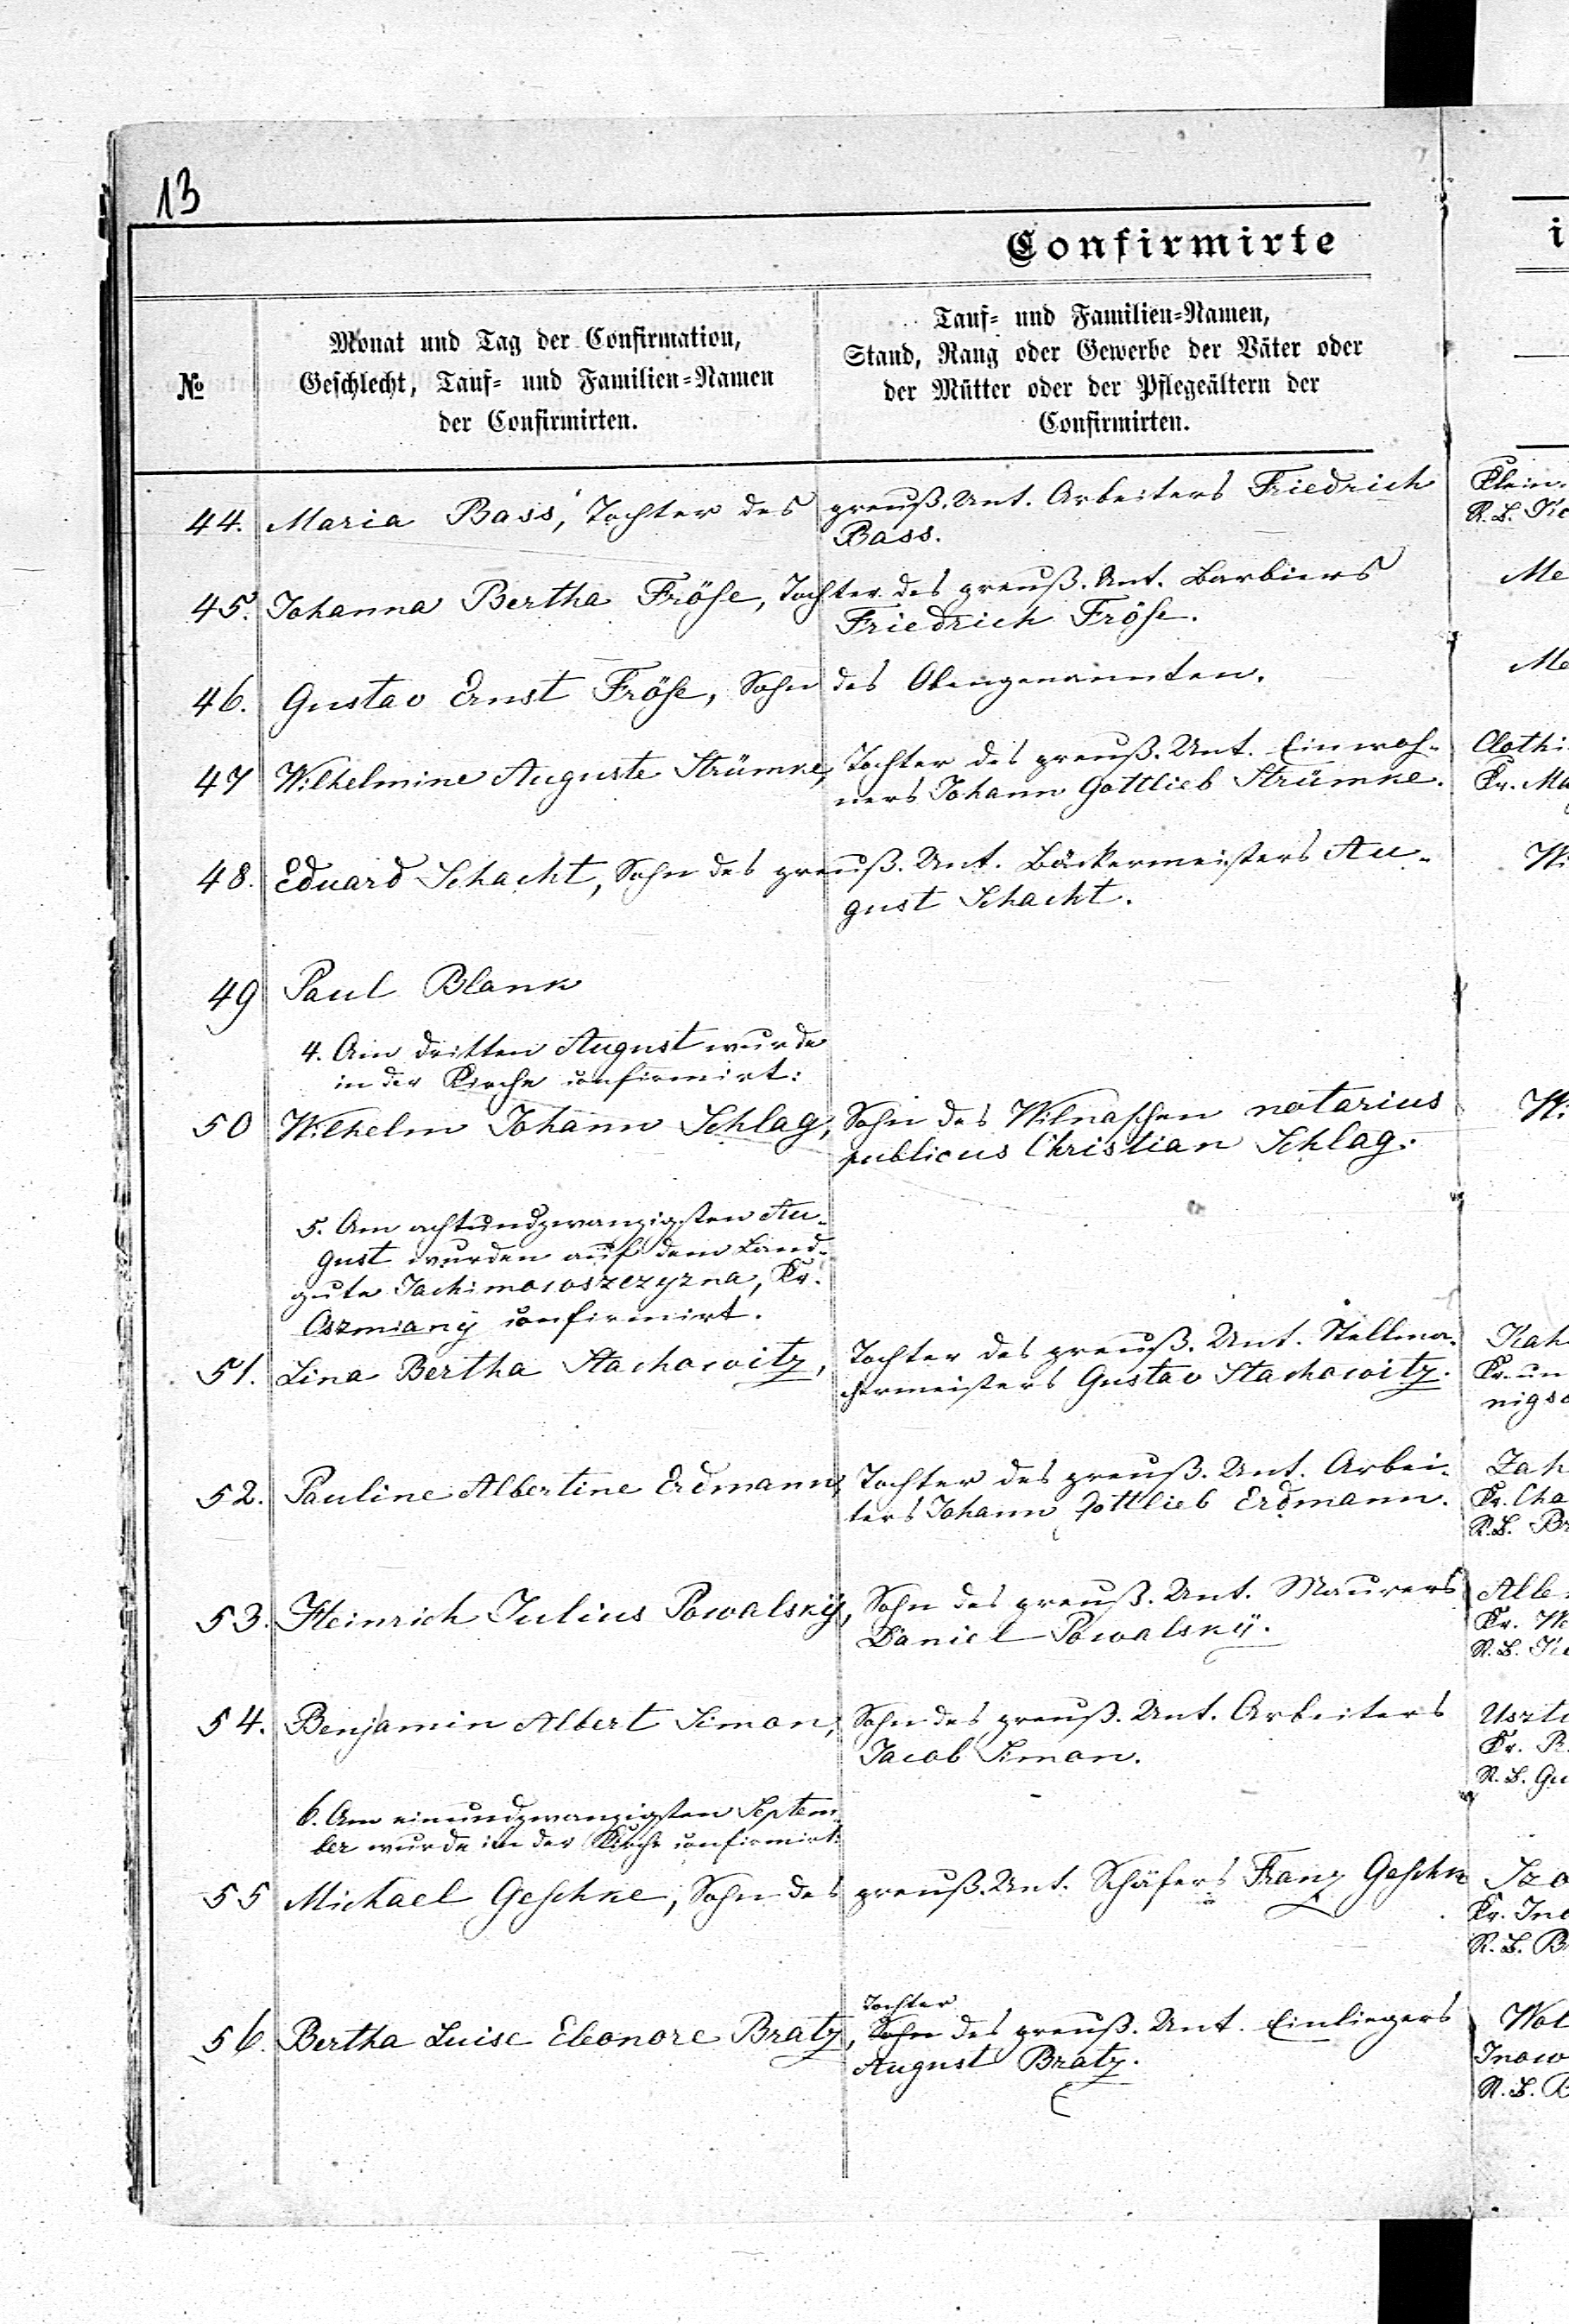 13
Confirmirte
i
Monat und Tag der Confirmation,
Geschlecht, Tauf= und Familien=Namen
der Confirmirten.
Tauf= und Familien=Namen,
Stand, Rang oder Gewerbe der Väter oder
der Mütter oder der Pflegeältern der
Confirmirten.
№
44. Maria Bass, Tochter des preuß. Unt. Arbeiters Friedrich
Bass.
Klein.
R. B.
45. Johanna Bertha Fröse, Tochter des preuß. Unt. Barbiers
Friedrich Fröse.
Me
46. Gustav Ernst Fröse, Sohn des Obengenannten.
Me
47 Wilhelmine Auguste Strümke, Tochter des preuß. Unt. Einwoh-
ners Johann Gottlieb Strümke.
Clothi
Kr. Ma
48. Eduard Schacht, Sohn des preuß. Unt. Bäckermeisters Au-
gust Schacht.
Wi
49 Paul Blank
4. Am dritten August wurde
in der Kirche confirmirt:
50 Wilhelm Johann Schlag, Sohn des Wilnaschen notarius
publicus Christian Schlag.
Wi
5. Am achtundzwanzigsten Au-
gust wurden auf dem Land-
gute Jachimowszczyzna, Kr.
Oszmiany confirmirt.
51. Lina Bertha Stachowitz, Tochter des preuß. Unt. Stellma-
chermeisters Gustav Stachowitz.
Kah
Kr. un
nigs
52. Pauline Albertine Erdmann, Tochter des preuß. Unt. Arbei-
ters Johann Gottlieb Erdmann.
Zah
Kr. Cha
R. B. Br
53. Heinrich Julius Powalsky, Sohn des preuß. Unt. Maurers
Daniel Powalsky.
Alle
Kr. W
R. B.
54. Benjamin Albert Simon, Sohn des preuß. Unt. Arbeiters
Jacob Simon.
Uszt
Kr. R.
R. B. Gu
6. Am einundzwanzigsten Septem-
ber wurde in der Kirche confirmirt:
55 Michael Geschke, Sohn des preuß. Unt. Schäfers Franz Geschke
Szo
Kr. Ino
R. B. B
Tochter
56. Bertha Luise Eleonore Bratz, Sohn des preuß. Unt. Einliegers
August Bratz.
Wol
Inow
R. B. B